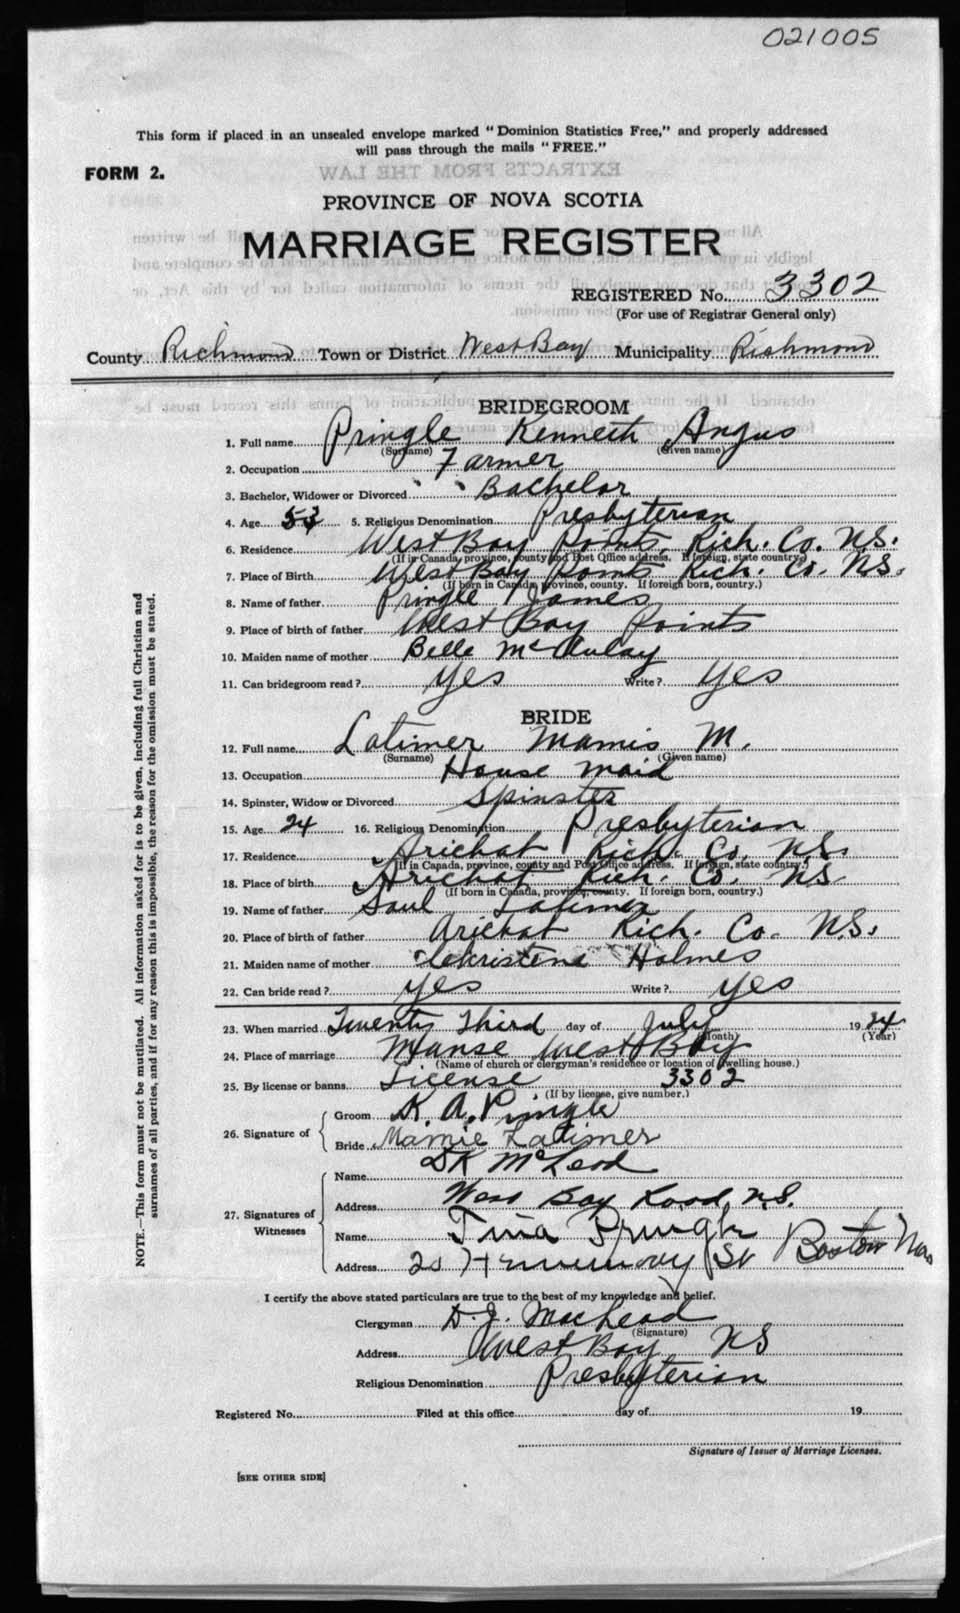 021005
This form if placed in an unsealed envelope marked "Dominion Statistics Free," and properly addressed
will pass through the mails "FREE."
FORM 2.
EXTRACTS FROM THE LAW
PROVINCE OF NOVA SCOTIA
MARRIAGE REGISTER
REGISTERED No. 3302
(For use of Registrar General only)
County Richmond Town or District West Bay Municipality Richmond
BRIDEGROOM
1. Full name Pringle Kenneth Angus
(Surname) (Given name)
2. Occupation Farmer
3. Bachelor, Widower or Divorced Bachelor
4. Age 5. Religious Denomination Presbyterian
6. Residence West Bay Points, Rich. Co. N.S.
(If in Canada, province, county and Post Office address. If foreign, state country.)
7. Place of Birth West Bay Points Rich. Co. N.S.
(If born in Canada, province, county. If foreign born, country.)
8. Name of father Pringle James
9. Place of birth of father West Bay Points
10. Maiden name of mother Belle McAulay
11. Can bridegroom read? Yes Write? Yes
BRIDE
12. Full name Latimer Mamie M.
(Surname) (Given name)
13. Occupation House Maid
14. Spinster, Widow or Divorced Spinster
15. Age 24 16. Religious Denomination Presbyterian
17. Residence Arichat Rich. Co. N.S.
(If in Canada, province, county and Post Office address. If foreign, state country.)
18. Place of birth Arichat Rich. Co. N.S.
(If born in Canada, province, county. If foreign born, country.)
19. Name of father Saul Latimer
20. Place of birth of father Arichat Rich. Co. N.S.
21. Maiden name of mother Holmes
22. Can bride read? Yes Write? Yes
23. When married Twenty Third day of July 1924
(Month) (Year)
24. Place of marriage Manse West Bay
(Name of church or clergyman's residence or location of dwelling house.)
25. By license or banns License 3302
(If by license, give number.)
26. Signature of
Groom K. A. Pringle
Bride Mamie Latimer
27. Signatures of Witnesses
Name DK McLeod
Address West Bay Road, N.S.
Name Tina Pringle
Address 20 Hemenway St Boston Mass
I certify the above stated particulars are true to the best of my knowledge and belief.
Clergyman D. J. MacLeod
(Signature)
Address West Bay NS
Religious Denomination Presbyterian
Registered No. Filed at this office day of 19
Signature of Issuer of Marriage Licenses.
[SEE OTHER SIDE]
NOTE.—This form must not be mutilated. All information asked for is to be given, including full Christian and
surnames of all parties, and if for any reason this is impossible, the reason for the omission must be stated.